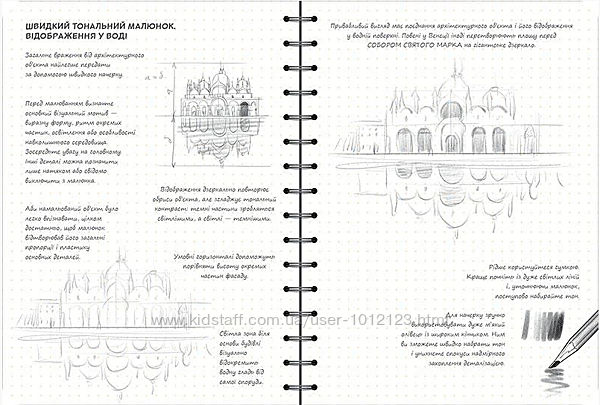 ШВИДКИЙ ТОНАЛЬНИЙ МАЛЮНОК.
ВІДОБРАЖЕННЯ У ВОДІ
Загальне враження від архітектурного
об'єкта найлегше передати
за допомогою швидкого начерку.
Перед малюванням визначте
основний візуальний мотив —
виразну форму, ритм окремих
частин, освітлення або особливості
навколишнього середовища.
Зосередьте увагу на головному.
Інші деталі можна позначити
лише натяком або свідомо
виключити з малюнка.
Відображення дзеркально повторює
обриси об'єкта, але згладжує тональний
контраст: темні частини зробляться
світлішими, а світлі — темнішими.
Аби намальований об'єкт було
легко впізнати, цілком
достатньо, щоб малюнок
відтворював його загальні
пропорції і пластику
основних деталей.
Умовні горизонталі допоможуть
порівняти висоту окремих
частин фасаду.
Світла зона біля
основи будівлі
візуально
відокремить
водну гладь від
самої споруди.
Привабливий вигляд має поєднання архітектурного об'єкта і його відображення
у водній поверхні. Повені у Венеції іноді перетворюють площу перед
СОБОРОМ СВЯТОГО МАРКА на гігантське дзеркало.
Рідше користуйтеся гумкою.
Краще почніть із дуже світлих ліній
і, уточнюючи малюнок,
поступово набирайте тон.
Для начерку зручно
використовувати дуже м'який
олівець із широким кінчиком. Ним
ви зможете швидко набрати тон
і уникнете спокуси надмірного
захоплення деталізацією.
www.kidstaff.com.ua/user-1012123.html